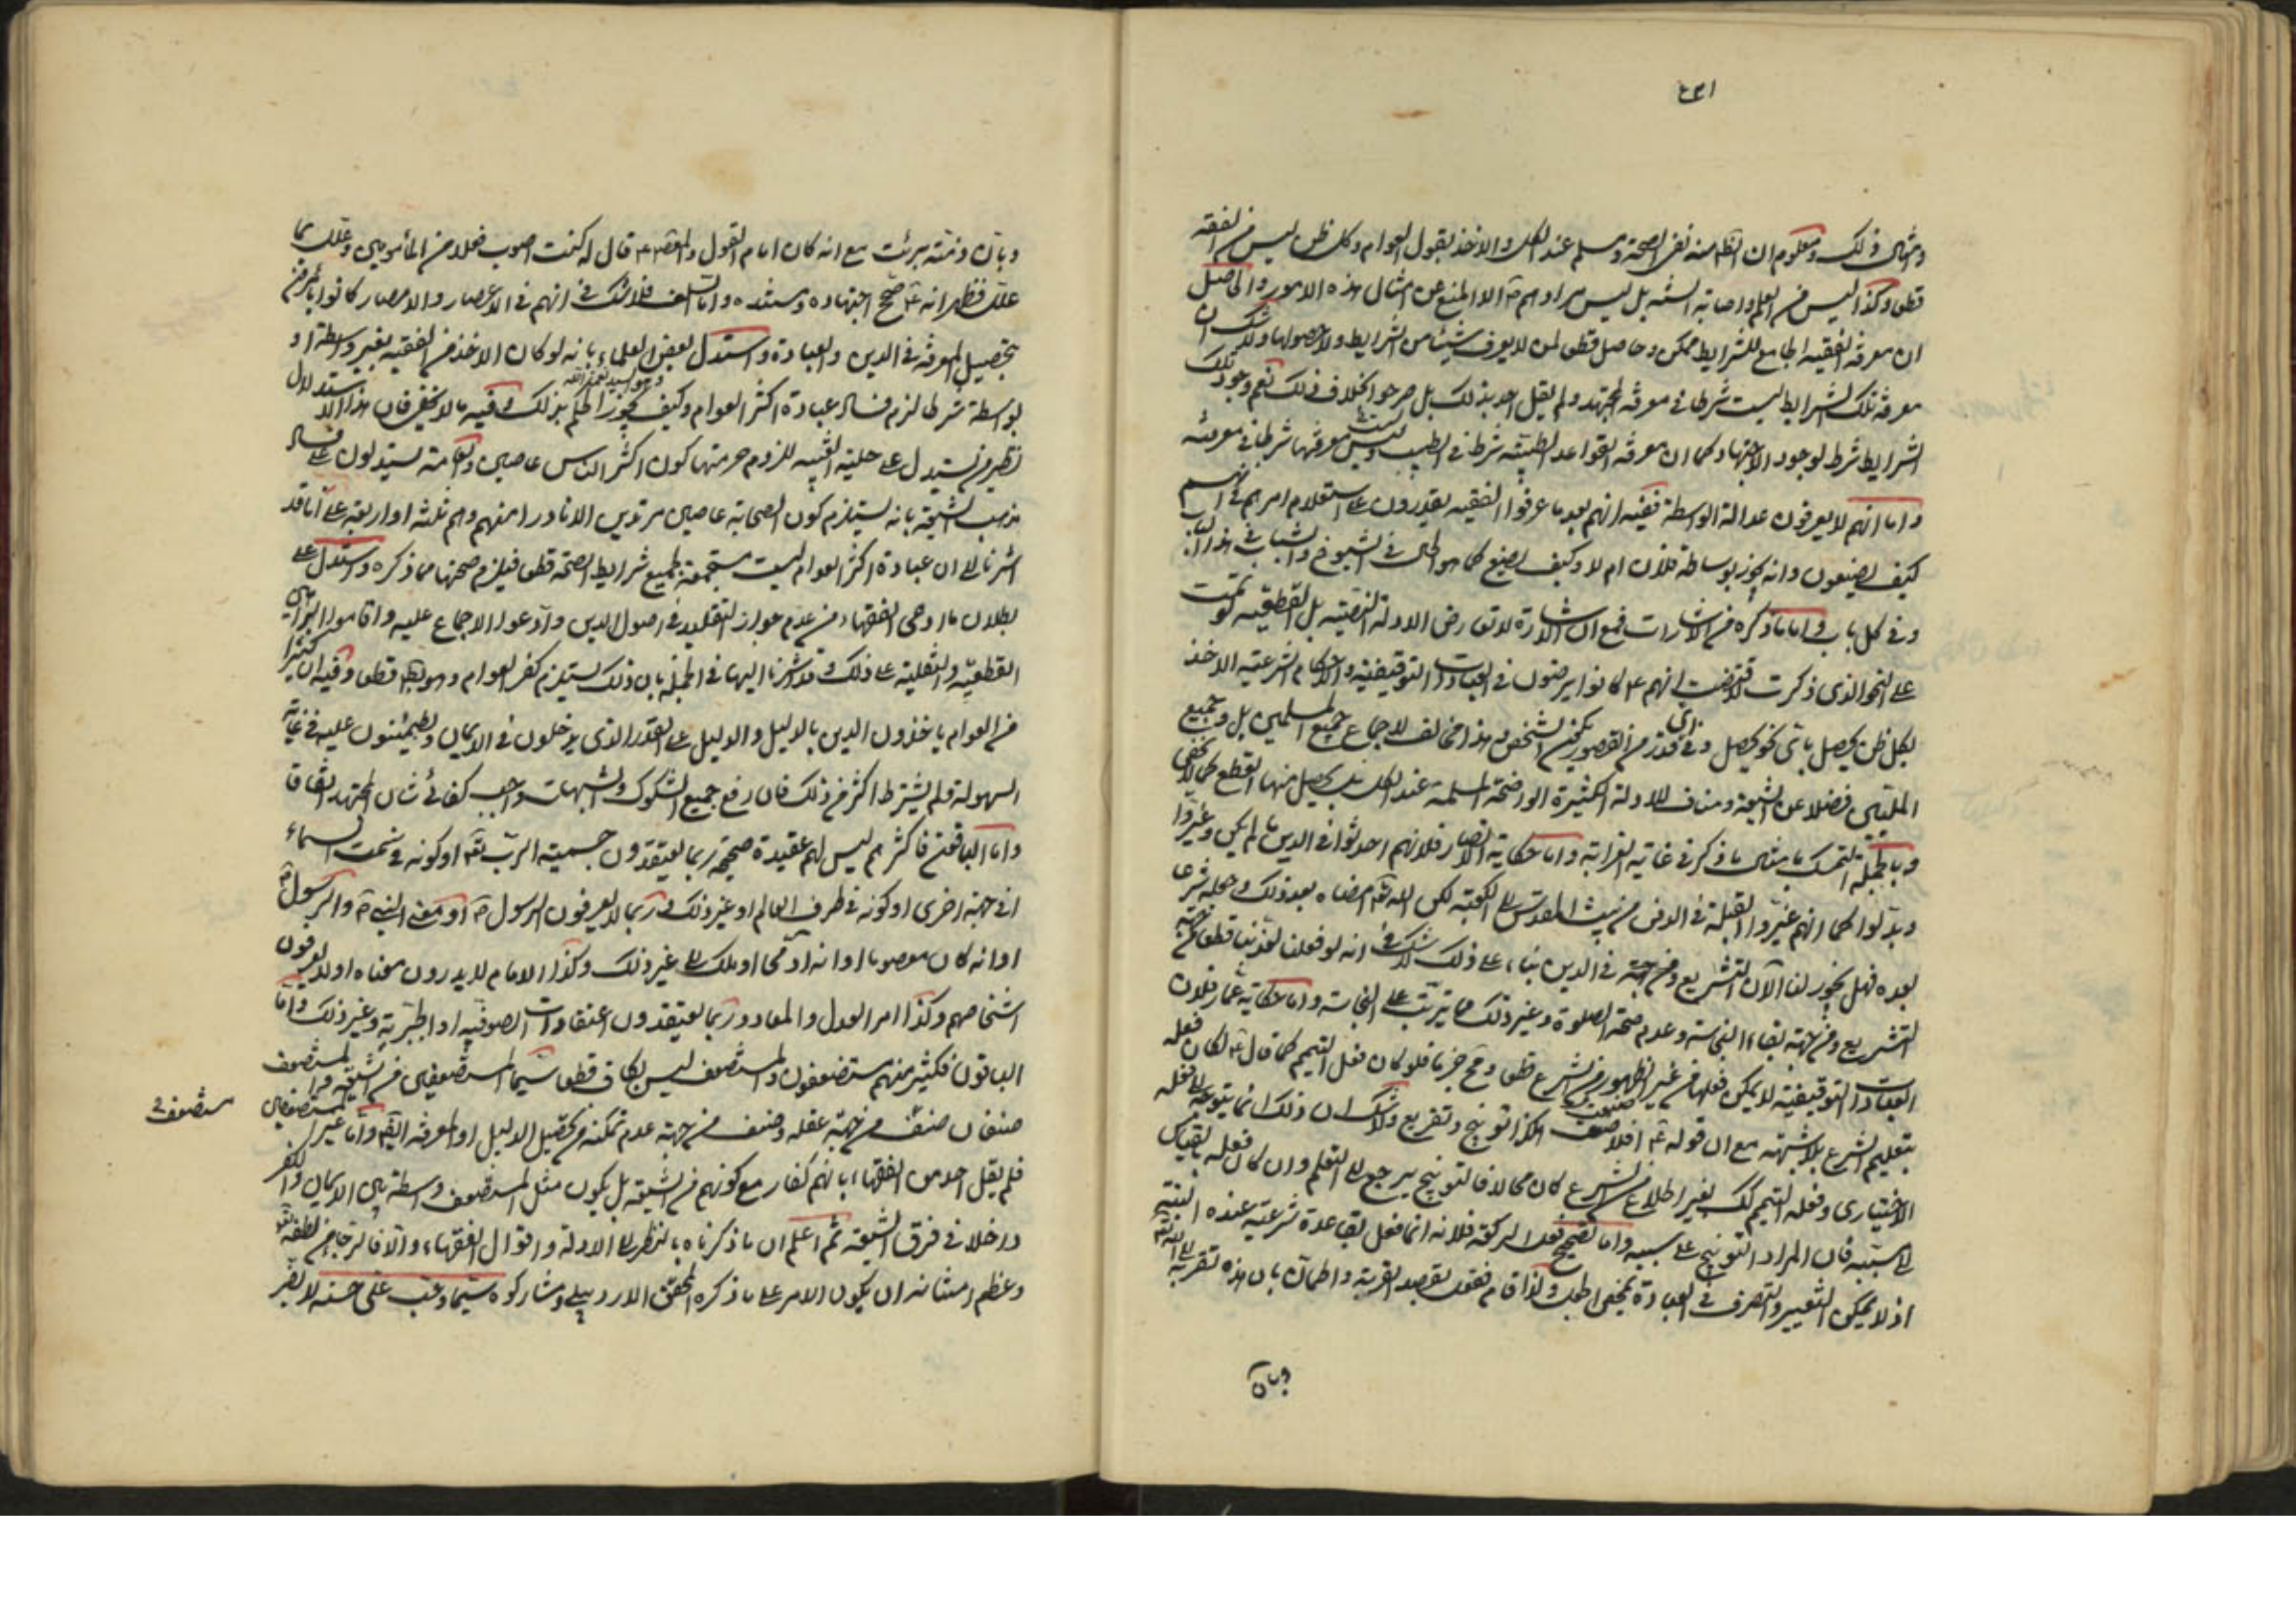 وامثال ذلك ومعلوم ان الظاهر منه نفى الصحة ومسلم عند الكل والاخذ بقول العوام وكل ظن ليس من الفقه
قطعا وكذا ليس من العلم واصابة السنة بل ليس مرادهم الا المنع عن امثال هذه الامور والحاصل
ان معرفة الفقيه الجامع للشرايط ممكن وحاصل قطعا لمن لا يعرف شيئا من الشرايط ولا حصولها ولا شك ان
معرفة تلك الشرايط ليست شرطا في معرفة المجتهد ولم يقل احد بذلك بل صرحوا بخلاف ذلك نعم وجود تلك
الشرايط شرط لوجود الاجتهاد كما ان معرفة القواعد الطبية شرط في الطبيب وليس معرفتها شرطا في معرفته
واما انهم لا يعرفون عدالة الواسطة ففيه انهم بعد ما عرفوا الفقيه يقدرون على استعلام امرهم في انهم
كيف يصنعون وانه يجوز بوساطة فلان ام لا وكيف يصنع كما هو الحال في الشيوخ والشباب في هذا الباب
وفي كل باب واما ما ذكره من الاشارات فمع ان الاشارة لا تعارض الادلة الظنية بل القطعية لو تمت
على النحو الذى ذكرت لاقتضت انهم ع كانوا يرضون في العبادات التوقيفية والاحكام الشرعية الاخذ
بكل ظن يحصل باى نحو يحصل وفي اى قدر من القصور يكون الشخص وهذا مخالف لاجماع جميع المسلمين بل وجميع
المليين فضلا عن الشيعة ومناف للادلة الكثيرة الواضحة المسلمة عند الكل بل يحصل منها القطع كما لا يخفى
وبالجملة التمسك بامثال ما ذكر في غاية الغرابة واما حكاية الانصار فلانهم احدثوا في الدين ما لم يكن وغيروا
وبدلوا كما انهم غيروا القبلة في الدفن من بيت المقدس الى الكعبة لكن الله تعالى امضاه بعد ذلك وجعله شرعا
بعده فهل يجوز لنا الآن التشريع ومن جهة في الدين بناء على ذلك لا شك في انه لو فعلنا لعذبنا قطعا من جهة
التشريع ومن جهة بقاء النجاسة وعدم صحة الصلوة وغير ذلك مما يترتب على النجاسة واما حكاية عمار فلان
العبادات التوقيفية لا يمكن فعلها من غير الظهور من الشرع قطعا ومع جزما فلو كان فعل التيمم كما قال ع لكان فعله
بتعليم الشرع بلا شبهة مع ان قوله ع افلا صنعت هكذا توبيخ وتقريع ولا شك ان ذلك انما يتوجه الى فعله
الاختيارى وفعله التيمم كك بغير اطلاع من الشرع كان محالا فالتوبيخ يرجع الى التعلم وان كان فعله بالقياس
الى سببه فان المراد التوبيخ على سببه واما تصحيح فعل الركعة فلانه انما فعل بقاعدة شرعية عنده البتة
اذ لا يمكن التغيير والتصرف في العبادة بمحض الجهل ولذا قام فقعد بقصد القربة واطمأن بان هذه تقربه الى الله تعالى
وبان
وبان ذمته برئت مع انه كان امام القول والمعصوم ع قال له كنت اصوب فعلا من المأمومين وعلل بما
علل فظهر انه ع صحح اجتهاده وسدده واما السلف فلا شك في انهم في الاعصار والامصار كانوا يأمرون
بتحصيل المعرفة في الدين والعبادة واستدل بعض العلماء بانه لو كان الاخذ من الفقيه بغير واسطة او
وهو السيد نعمة الله
بواسطة شرطا لزم فساد عبادة اكثر العوام وكيف يجوز الحكم بذلك وفيه ما لا يخفى فان هذا الاستدلال
نظير من يستدل على حلية الغيبة للزوم حرمتها كون اكثر الناس عاصين والعامة يستدلون على فساد
مذهب الشيعة بانه يستلزم كون الصحابة عاصين مرتدين الا نادرا منهم وهم ثلثة او اربعة على انا قد
اشرنا الى ان عبادة اكثر العوام ليست مستجمعة لجميع شرايط الصحة قطعا فيلزم صحتها مما ذكره واستدل على
بطلان ما ادعى الفقهاء من عدم جواز التقليد في اصول الدين وادعوا الاجماع عليه واقاموا البراهين
القطعية والنقلية على ذلك وقد اشرنا اليها في الجملة بان ذلك يستلزم كفر العوام وهو باطل قطعا وفيه ان كثيرا
من العوام ياخذون الدين بالدليل والدليل على القدر الذى يدخلون في الايمان ويطمئنون عليه في غاية
السهولة ولم يشترط اكثر من ذلك فان رفع جميع الشكوك والشبهات واجب كفائى شان المجتهد اتفاقا
واما الباقون فاكثرهم ليس لهم عقيدة صحيحة ربما يعتقدون جسمية الرب تعالى او كونه في سمت السماء
او في جهة اخرى او كونه في طرف العالم او غير ذلك وربما لا يعرفون الرسول ص او معنى النبى ص والرسول ص
او انه كان معصوما او انه آدمى او ملك الى غير ذلك وكذا الامام لا يدرون معناه او لا يعرفون
اشخاصهم وكذا امر العدل والمعاد وربما يعتقدون اعتقادات الصوفية او الجبرية وغير ذلك واما
الباقون فكثير منهم مستضعفون والمستضعف ليس بكافر قطعا سيما المستضعفين من الشيعة والمستضعف
صنفان صنف من جهة عقله وصنف من جهة عدم تمكنه من تحصيل الدليل او المعرفة ايضا واما غير المستضعفين
مستضعف
فلم يقل احد من الفقهاء بانهم كفار مع كونهم من الشيعة بل يكون مثل المستضعف واسطة بين الايمان والكفر
داخلا في فرق الشيعة ثم اعلم ان ما ذكرناه بالنظر الى الادلة واقوال الفقهاء والا فالرجاء من لطفه تعالى
وعظم امتنانه ان يكون الامر على ما ذكره المحقق الاردبيلى ومشاركوه سيما وحب على حسنة لا يضر